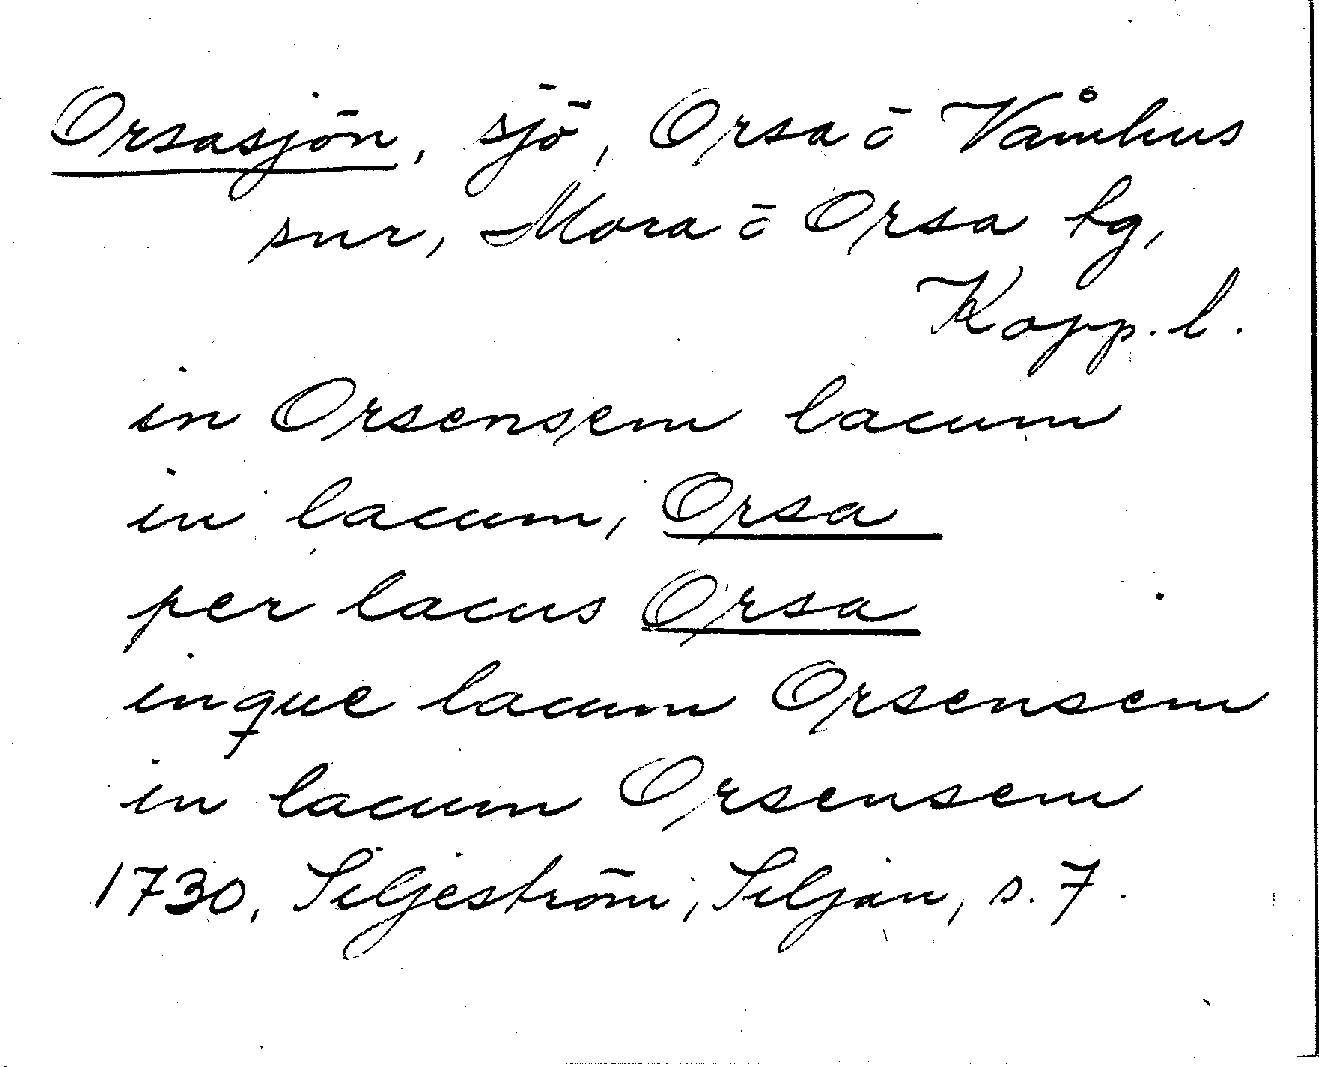 Orsasjön, sjö, Orsa o Våmhus
snr, Mora o Orsa tg,
Kopp. l.
in Orsensem lacum
in lacum, Orsa
per lacus Orsa
inque lacum Orsensem
in lacum Orsensem
1730, Siljeström, Siljan, s. 7.